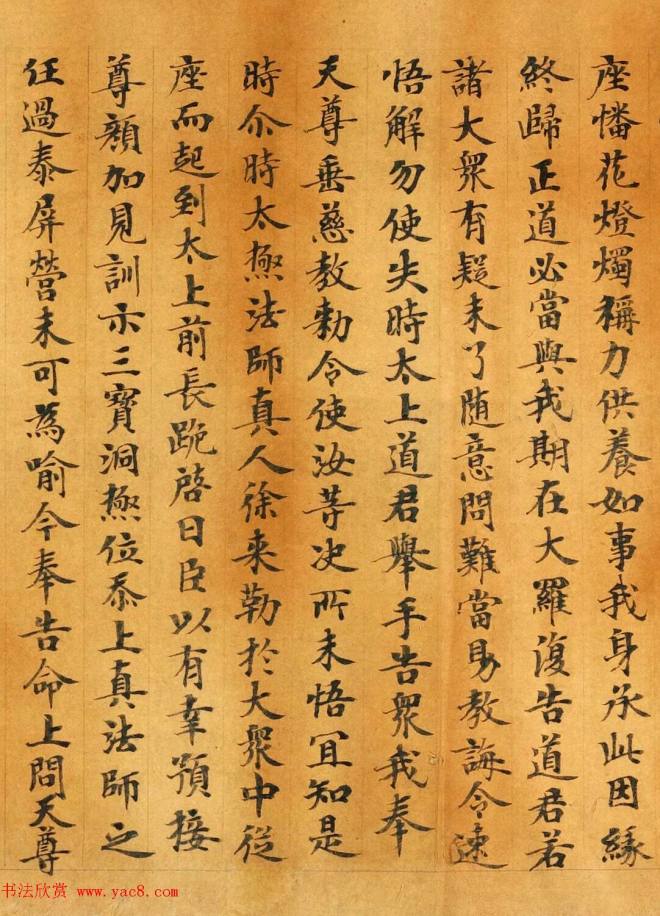 座幡花燈燭稱力供養如事我身承此因緣
終歸正道必當與我期在大羅復告道君若
諸大衆有疑未了随意問難當易教誨令速
悟解勿使失時太上道君舉手告衆我奉
天尊垂慈教勑令使汝等决所未悟冝知是
時尒時太極法師真人徐来勒於大衆中従
座而起到太上前長跪啓曰臣以有幸預接
尊顔加見訓示三寶洞極位忝上真法師之
任過泰屏營未可為喻今奉告命上問天尊
书法欣赏 www.yac8.com